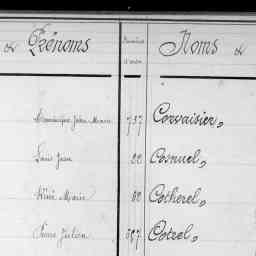 & Prénoms Numéros d'ordre Noms &
Dominique Jean Marie 757 Corvaisier,
Louis Jean 22 Cosnuel,
René Marie 60 Cotherel,
Pierre Julien 597 Cotrel,